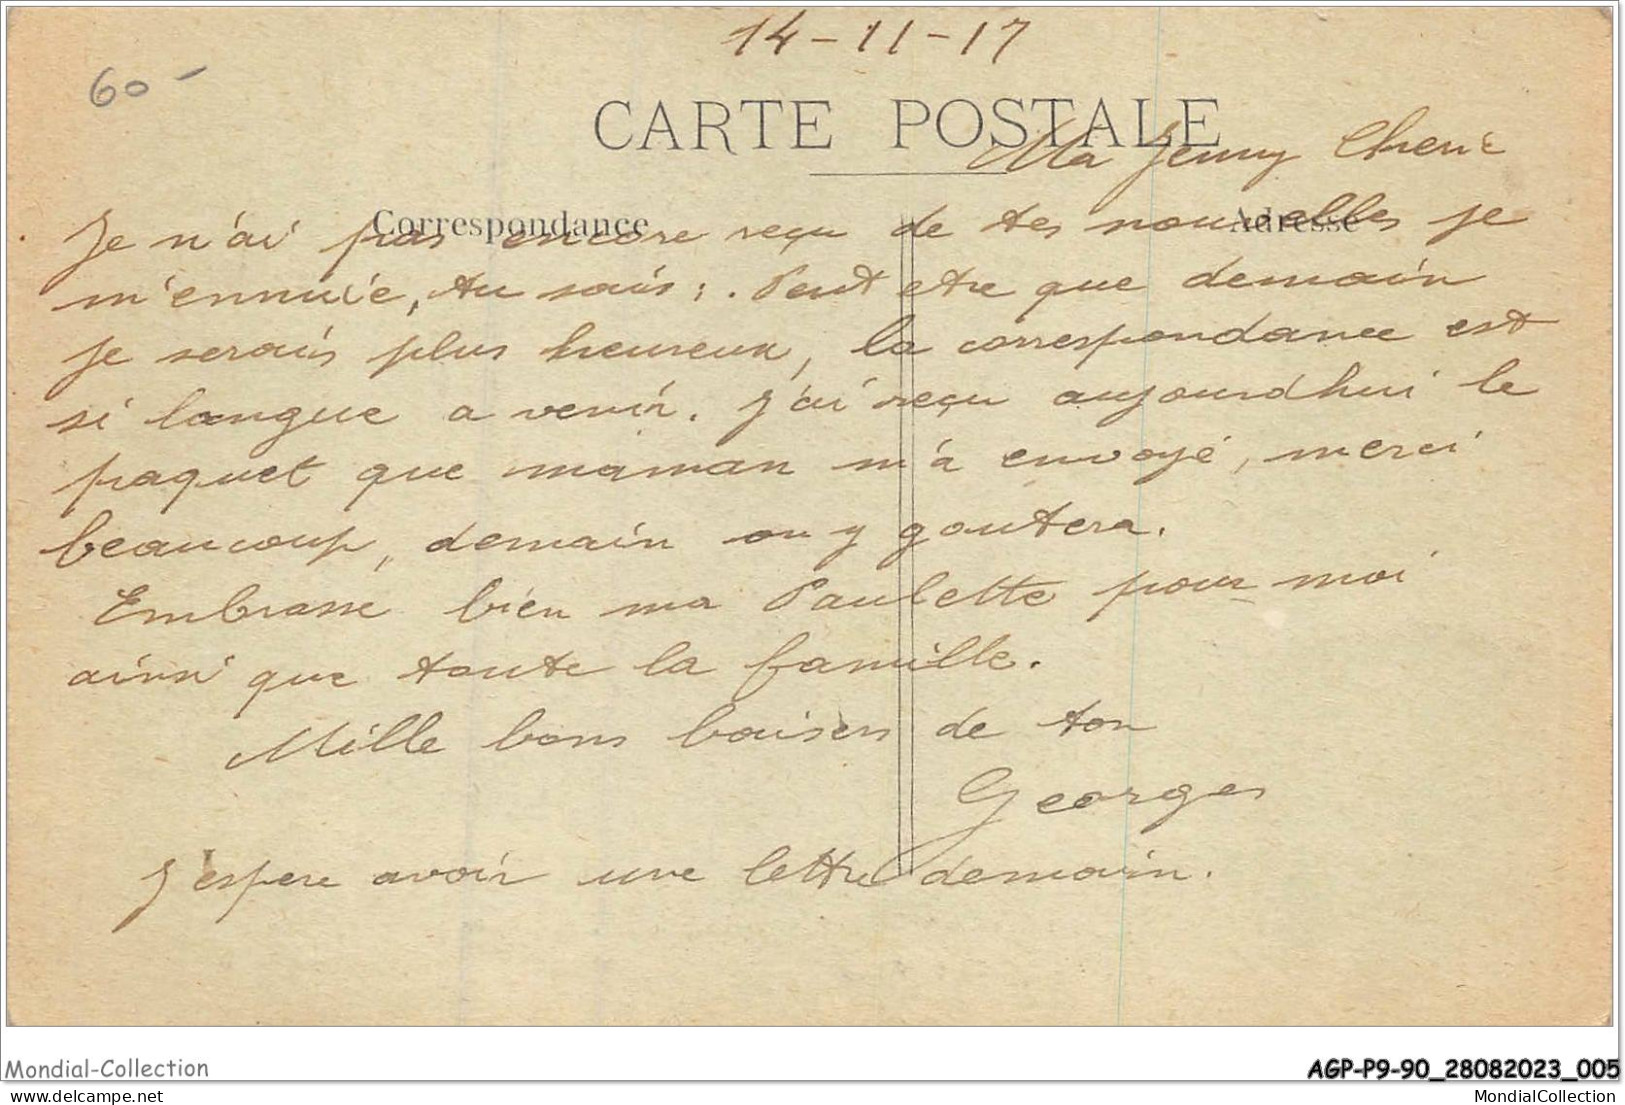 14-11-17
60-
CARTE POSTALE
Ma Jenny Cherie
Correspondance
Adresse
Je n'ai pas encore reçu de tes nouvelles je
m'ennuie, tu sais; . Peut etre que demain
je serais plus heureux, la correspondance est
si longue a venir. J'ai reçu aujourdhui le
paquet que maman m'a envoyé, merci
beaucoup, demain on y goutera.
Embrasse bien ma Paulette pour moi
ainsi que toute la famille.
Mille bons baisers de ton
Georges
J'espere avoir une lettre demain.
Mondial-Collection
AGP-P9-90_28082023_005
delcampe.net
MondialCollection